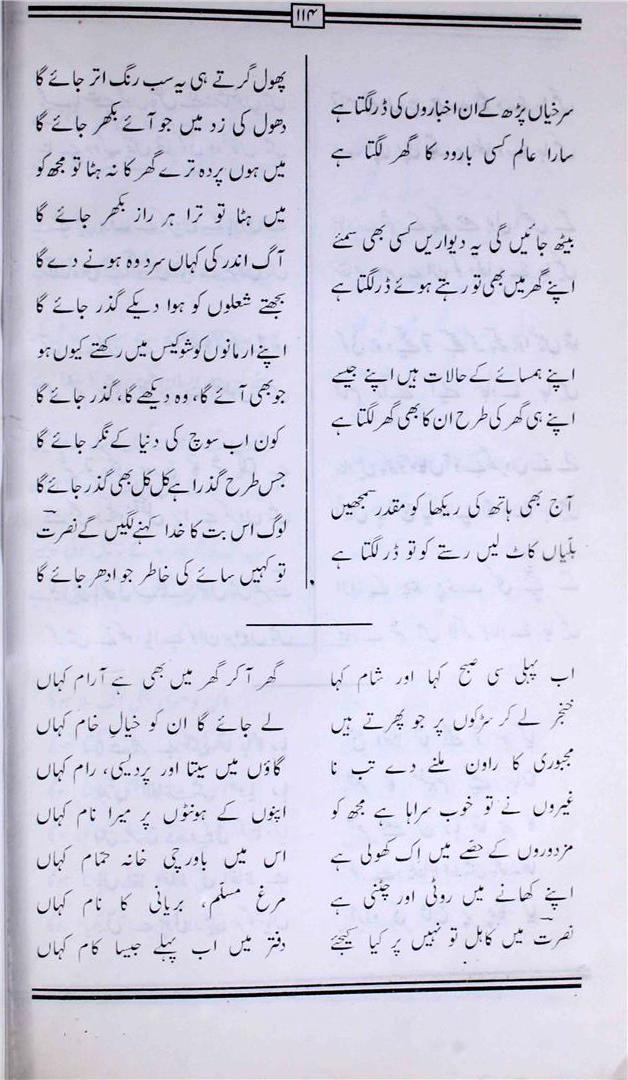 ۱۱۴
سرخیاں پڑھ کے ان اخباروں کی ڈر لگتا ہے
سارا عالم کسی بارود کا گھر لگتا ہے
بیٹھ جائیں گی یہ دیواریں کسی بھی سمئے
اپنے گھر میں بھی تو رہتے ہوئے ڈر لگتا ہے
اپنے ہمسائے کے حالات ہیں اپنے جیسے
اپنے ہی گھر کی طرح ان کا بھی گھر لگتا ہے
آج بھی ہاتھ کی ریکھا کو مقدر سمجھیں
بلیاں کاٹ لیں رستے کو تو ڈر لگتا ہے
پھول گرتے ہی یہ سب رنگ اتر جائے گا
دھول کی زد میں جو آئے بکھر جائے گا
میں ہوں پردہ ترے گھر کا نہ ہٹا تو مجھ کو
میں ہٹا تو ترا ہر راز بکھر جائے گا
آگ اندر کی کہاں سرد وہ ہونے دے گا
بجھتے شعلوں کو ہوا دیکے گذر جائے گا
اپنے ارمانوں کو شوکیس میں رکھتے کیوں ہو
جو بھی آئے گا، وہ دیکھے گا، گذر جائے گا
کون اب سوچ کی دنیا کے نگر جائے گا
جس طرح گذرا ہے کل کل بھی گذر جائے گا
لوگ اس بت کا خدا کہنے لگیں گے نصرت
تو کہیں سائے کی خاطر جو ادھر جائے گا
اب پہلی سی صبح کہا اور شام کہا گھر آکر گھر میں بھی ہے آرام کہاں
خنجر لے کر سڑکوں پر جو پھرتے ہیں لے جائے گا ان کو خیالِ خام کہاں
مجبوری کا راون ملنے دے تب نا گاؤں میں سیتا اور پردیسی، رام کہاں
غیروں نے تو خوب سراہا ہے مجھ کو اپنوں کے ہونٹوں پر میرا نام کہاں
مزدوروں کے حصّے میں اِک کھولی ہے اس میں باورچی خانہ حمّام کہاں
اپنے کھانے میں روٹی اور چٹنی ہے مرغ مسلّم، بریانی کا نام کہاں
نصرت میں کاہل تو نہیں پر کیا کیجئے دفتر میں اب پہلے جیسا کام کہاں